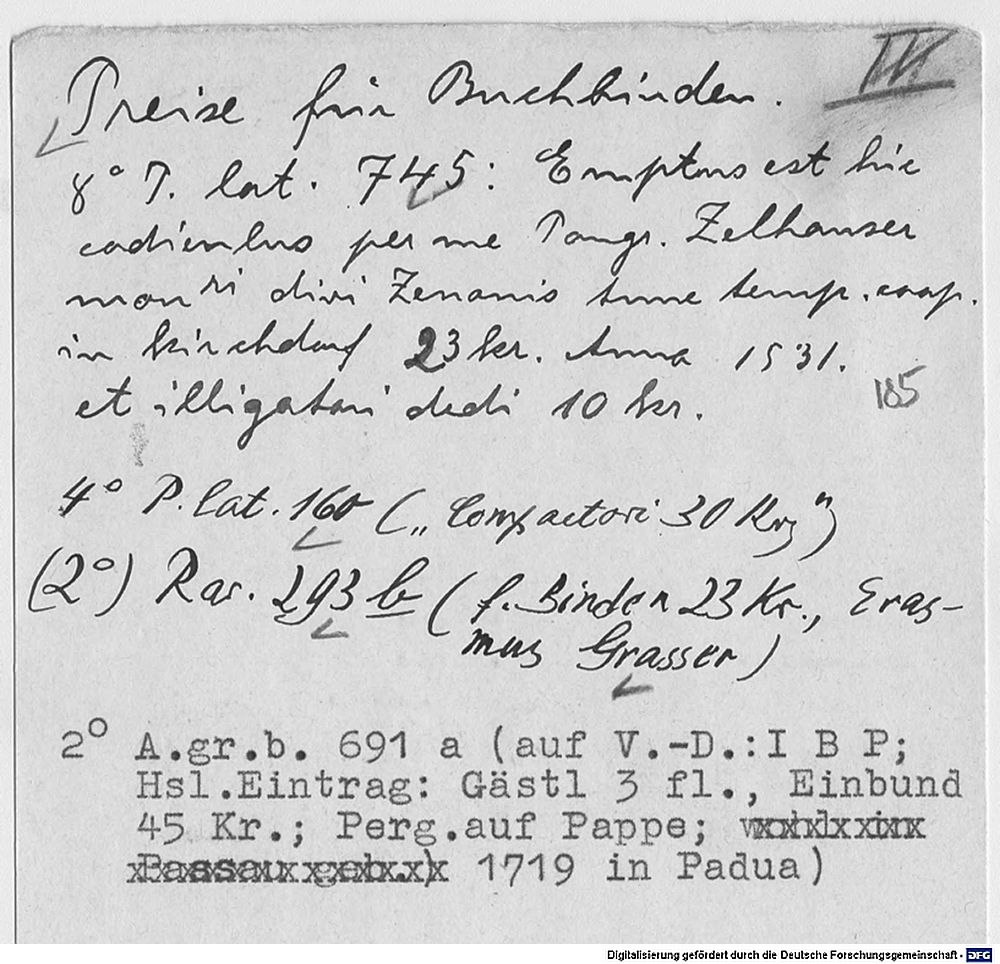 III
Preise für Buchbinden.
8° P. lat. 745: Emptus est hic
codiculus per me Pangr. Zelhauser
monri divi Zenonis tunc temp. coop.
in kirchdorf 23 kr. Anno 1531.
et illigatori dedi 10 kr.
185
4° P. lat. 160 („Compactori 30 Krz")
(2°) Rar. 293 b (f. Binden 23 Kr., Eras-
mus Grasser)
2° A.gr.b. 691 a (auf V.-D.:I B P;
Hsl.Eintrag: Gästl 3 fl., Einbund
45 Kr.; Perg.auf Pappe; wohl in
Passau geb.) 1719 in Padua)
Digitalisierung gefördert durch die Deutsche Forschungsgemeinschaft - DFG